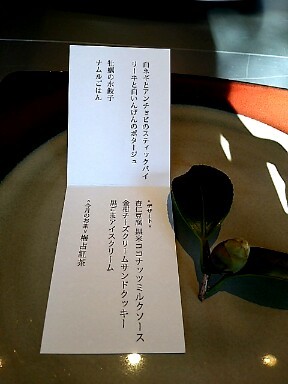 白ネギとアンチョビのスティックパイ
リーキと白いんげんのポタージュ
牡蠣の水餃子
ナムルごはん
*デザート*
杏仁豆腐 黒米ココナッツミルクソース
金柑チーズクリームサンドクッキー
黒ごまアイスクリーム
*今月のお茶*